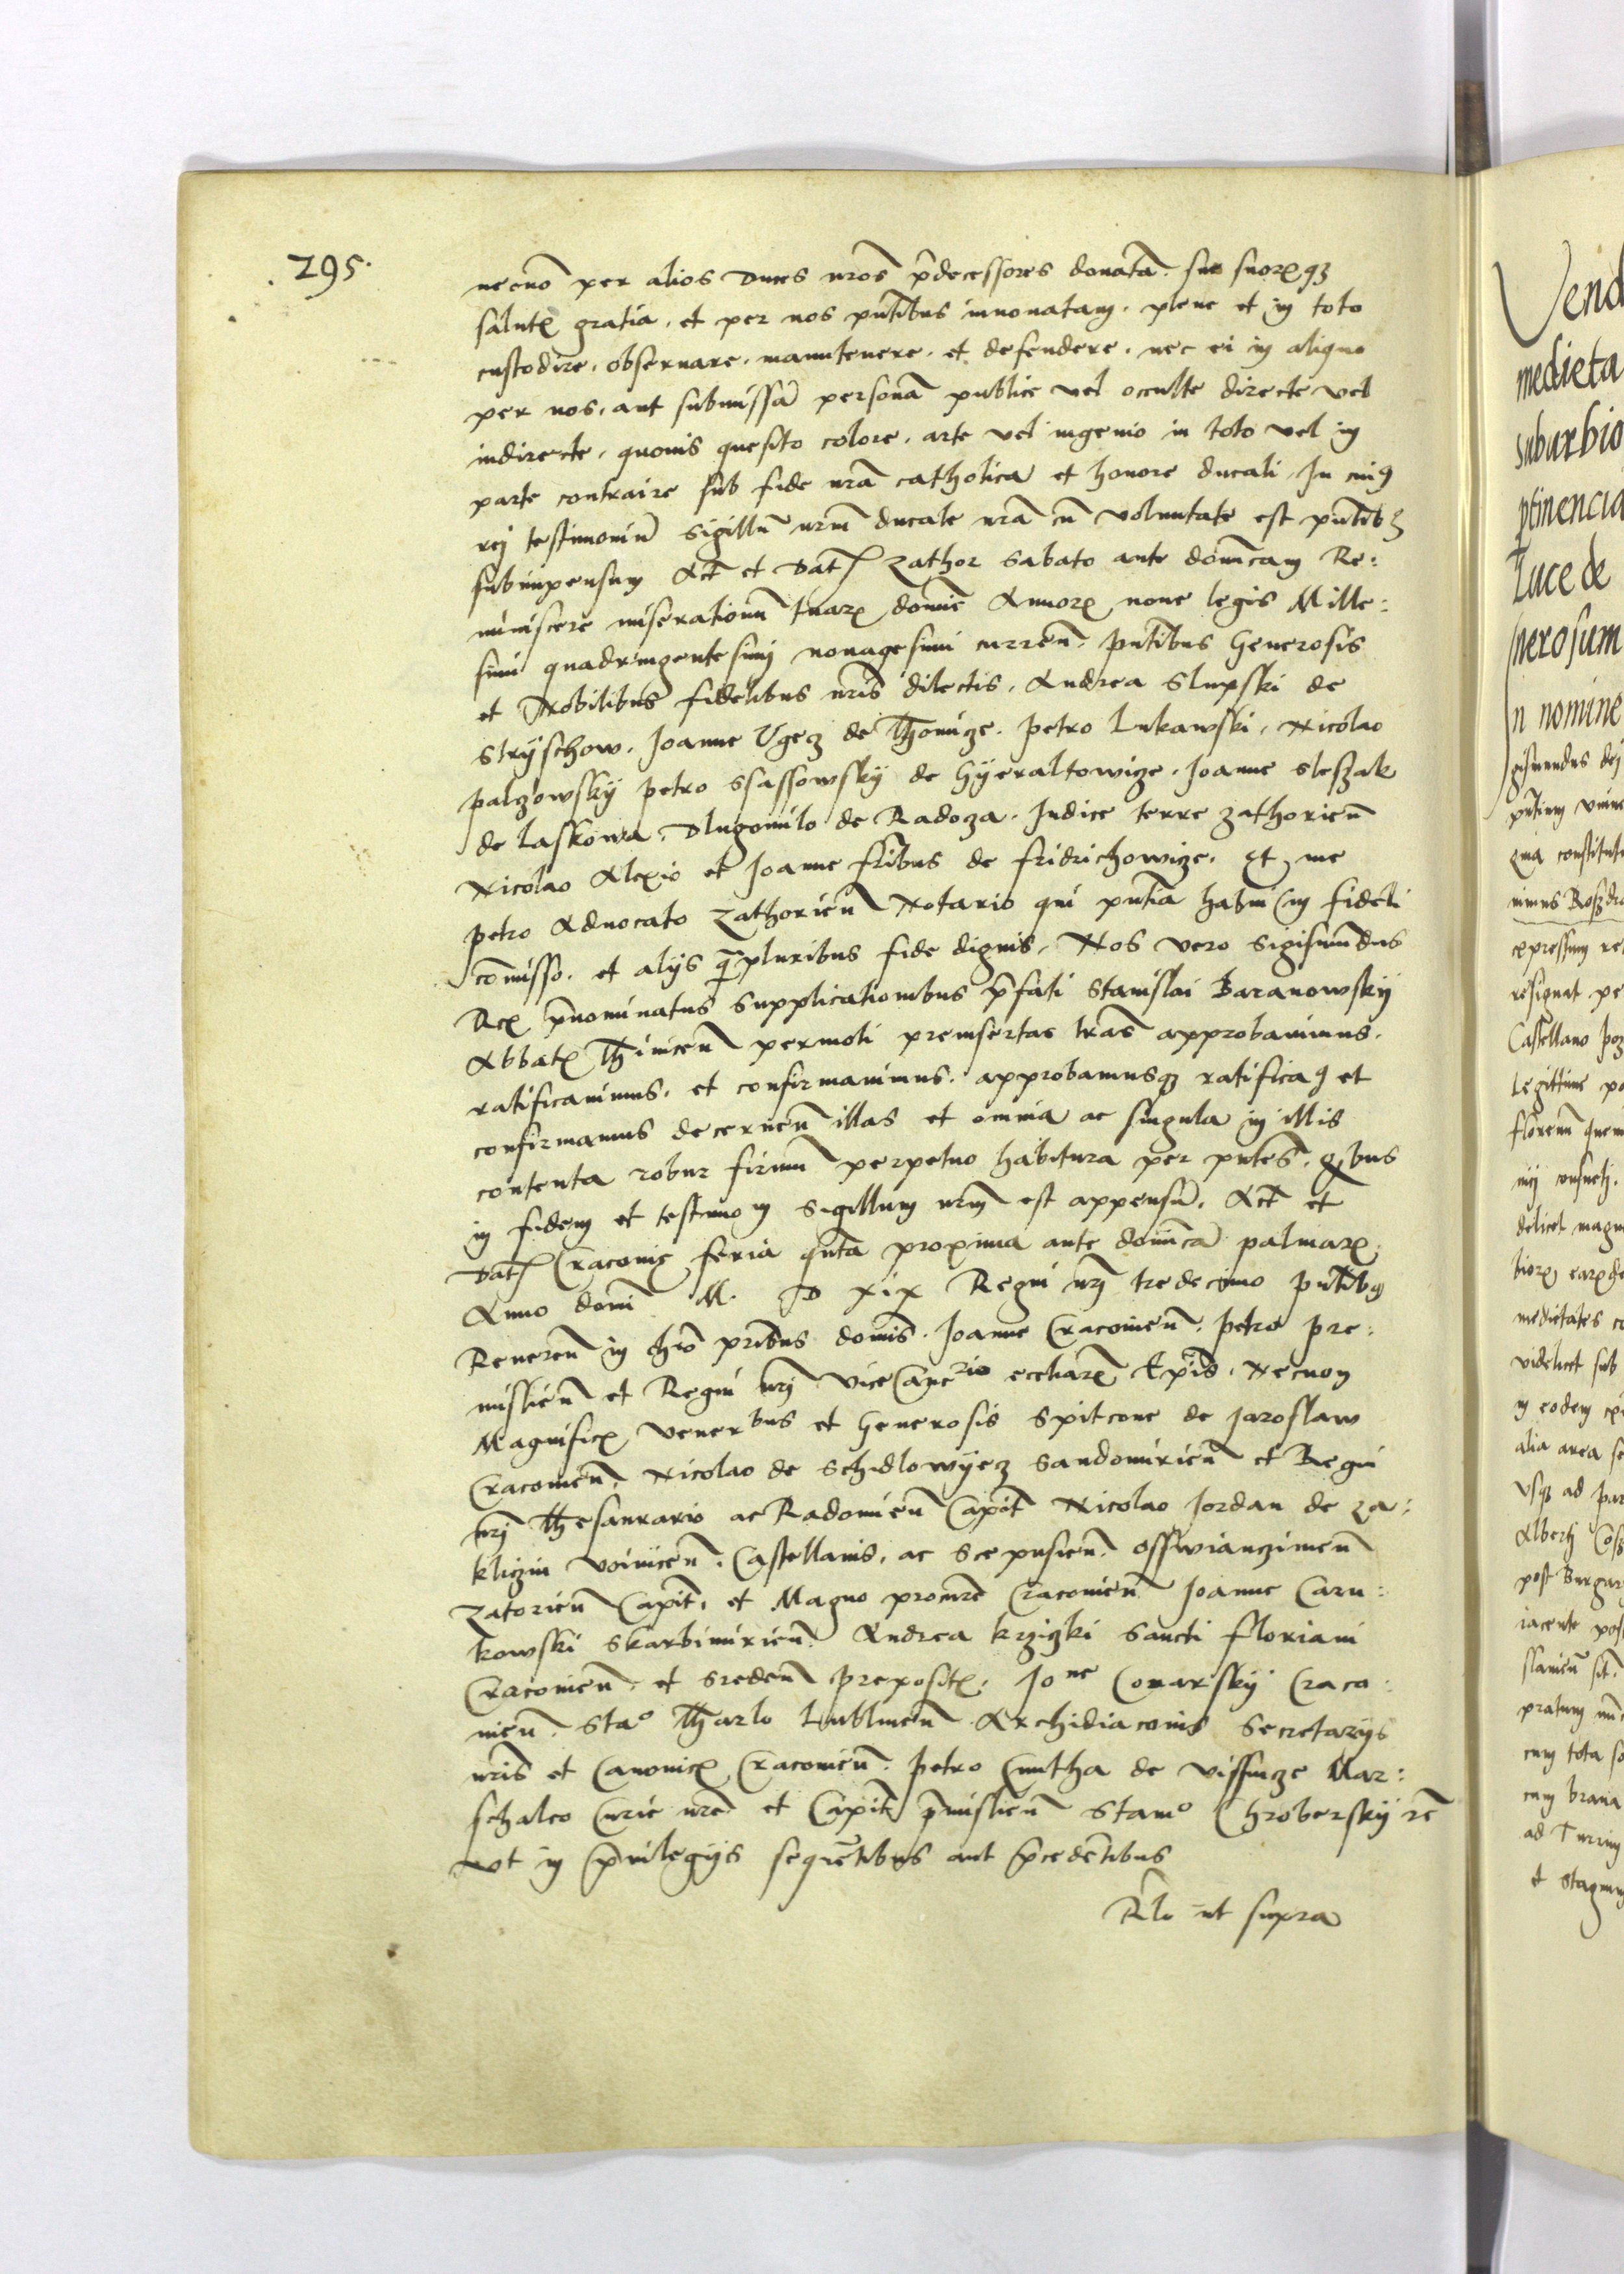 295.
necnō per alios Duces nrōs p̄decessores donatā. sue suorꝝqꝫ
salutꝭ gratia, et per nos pn̄tibus innovatam. plene et in toto
custodire, observare, manutenere, et defendere, nec ei in aliquo
per nos, aut submissā personā publice vel occulte directe vel
indirecte, quovis quesito colore, arte vel ingenio in toto vel in
parte contraire sub fide nrā catholica et honore ducali, In cuiꝯ
rej testimoniū sigillū nrm̄ ducale nrā cū voluntate est pn̄tibꝫ
subimpensum Act̄ et Datꝭ Zathor Sabato ante domīcam Re:
miniscere miserationū tuarꝝ domiē Annorꝝ nove legis Mille:
simi quadringentesimj nonagesimi curreñ. pn̄tibus Generosis
et Nobilibus fidelibus nrīs dilectis, Andrea Slupski de
Stryschow. Joanne Ugez de Thomize. Petro Lukawski, Nicolao
Palczowsky Petro Ssassowsky de Gyeraltowize. Joanne Sleszak
de Laskowa. Dlugomilo de Radoza. Judice terre Zathorieñ
Nicolao Alexio et Joanne frībus de Fridrichowize. Et me
Petro Advocato Zathorieñ Notario qui pn̄tia habui in fideli
cōmisso. et alijs q̄pluribus fide dignis, Nos vero Sigismundus
Rex p̄nominatus supplicationibus p̄fati Stanislai Baranowsky
Abbatꝭ Thiniceñ permoti preinsertas lrās approbavimus.
ratificavimus, et confirmavimus. approbamusqꝫ ratificaꝯ et
confirmamus decerneñ illas et omnia ac singula in illis
contenta robur firmū perpetuo habitura per pn̄tes. qbus
in fidem et testimom sigillum nrm̄ est appensū. Act̄ et
Datꝭ Cracovie feria qnta proxima ante domīcā palmarꝝ
Anno domī M. D xix Regni nrj tredecimo pn̄tibꝯ
Revereñ in chrō prībus domīs. Joanne Cracovieñ. Petro Pre:
mislieñ et Regni nrj vice Cancrio eccliarꝝ Epīs. Necnon
Magnificꝭ venerbus et Generosis Spitcone de Jaroslaw
Cracovieñ. Nicolao de Schidlowyez Sandomirieñ et Regni
nrj Thesaurario ac Radomieñ Capit̄ Nicolao Jordan de Za:
kliczin voiniceñ. Castellanis, ac Scepusieñ. Osswianczimeñ
Zatorieñ Capit̄, et Magno procurē Cracovieñ Joanne Carn:
kowski Skarbimirieñ. Andrea Krziczki Sancti Floriani
Cracovieñ. et Sredeñ prepositꝭ. Jone Conarsky Craco:
vieñ. Stao Tharlo Lublineñ Archidiaconis Secretarijs
nrīs et Canonicꝭ Cracovieñ. Petro Cmitha de vissnize Mar:
schalco Curie nrē et Capit̄ p̄mislieñ Stamo Chrobersky rē
vt in p̄vilegijs sequētibus aut p̄cedētibus
Rlō ut supra
Vend
medieta
suburbio
ptinencia
Luce de
nerosum
n nomine